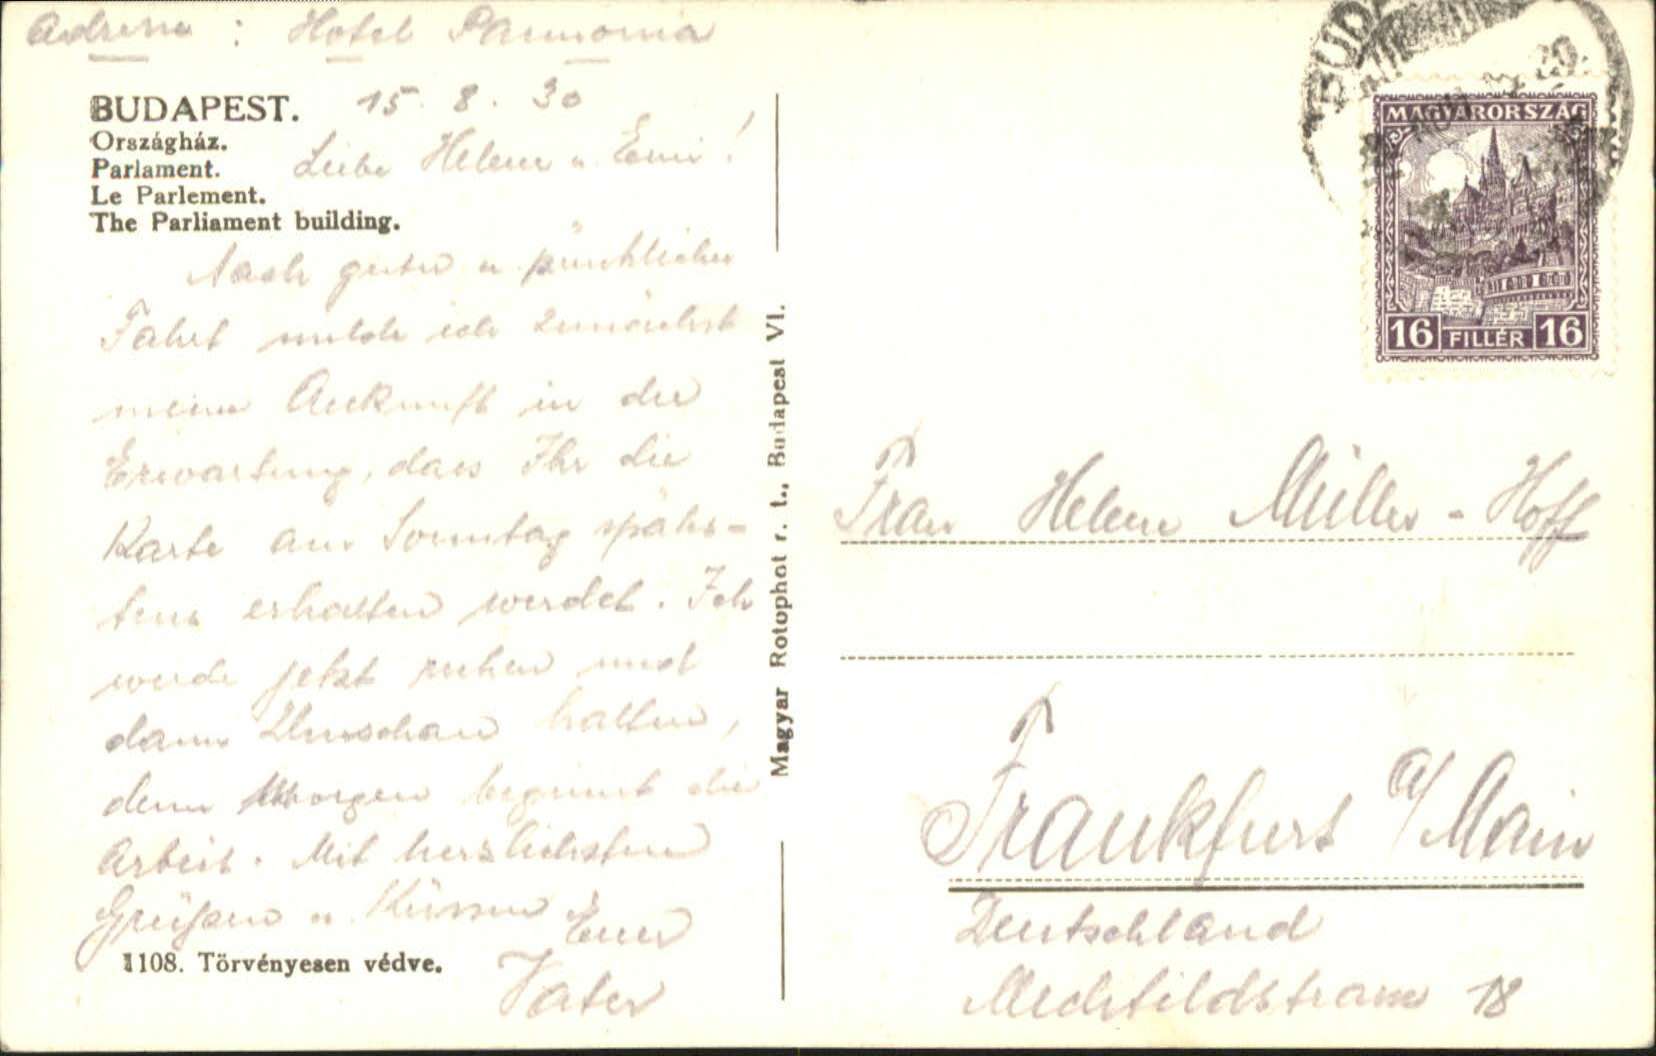 Adresse: Hotel Pannonia
BUDAPEST.
15. 8. 30
Országház.
Parlament.
Le Parlement.
The Parliament building.
Liebe Helene u. Emi!
Nach guter u pünktlicher
Fahrt melde ich zunächst
meine Ankunft in der
Erwartung, dass Ihr die
Karte am Sonntag späts-
tens erhalten werdet. Ich
werde jetzt ruhen und
dann Umschau halten,
denn Morgen beginnt die
Arbeit. Mit herzlichsten
Grüßen u. Küssen Euer
Vater
1108. Törvényesen védve.
Magyar Rotophot r. t., Budapest VI.
BUDAPEST
MAGYARORSZÁG
16 FILLÉR 16
Frau Helene Müller-Hoff
Frankfurt a/Main
Deutschland
Mechtildstrasse 18